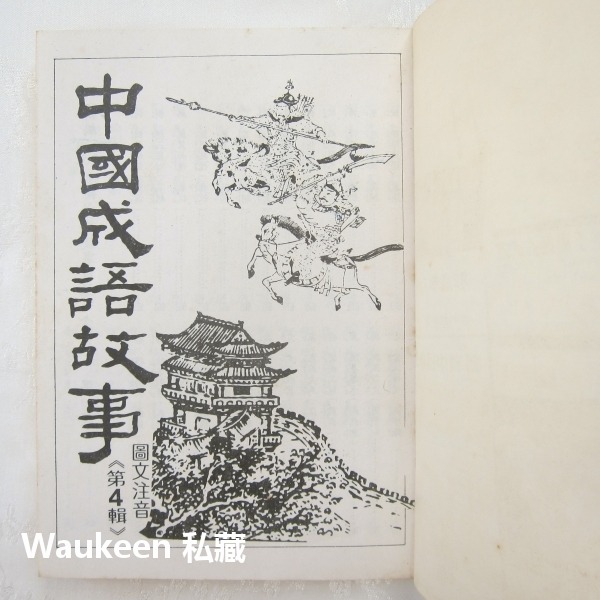 中國成語故事
圖文注音
《第4輯》
Waukeen 私藏